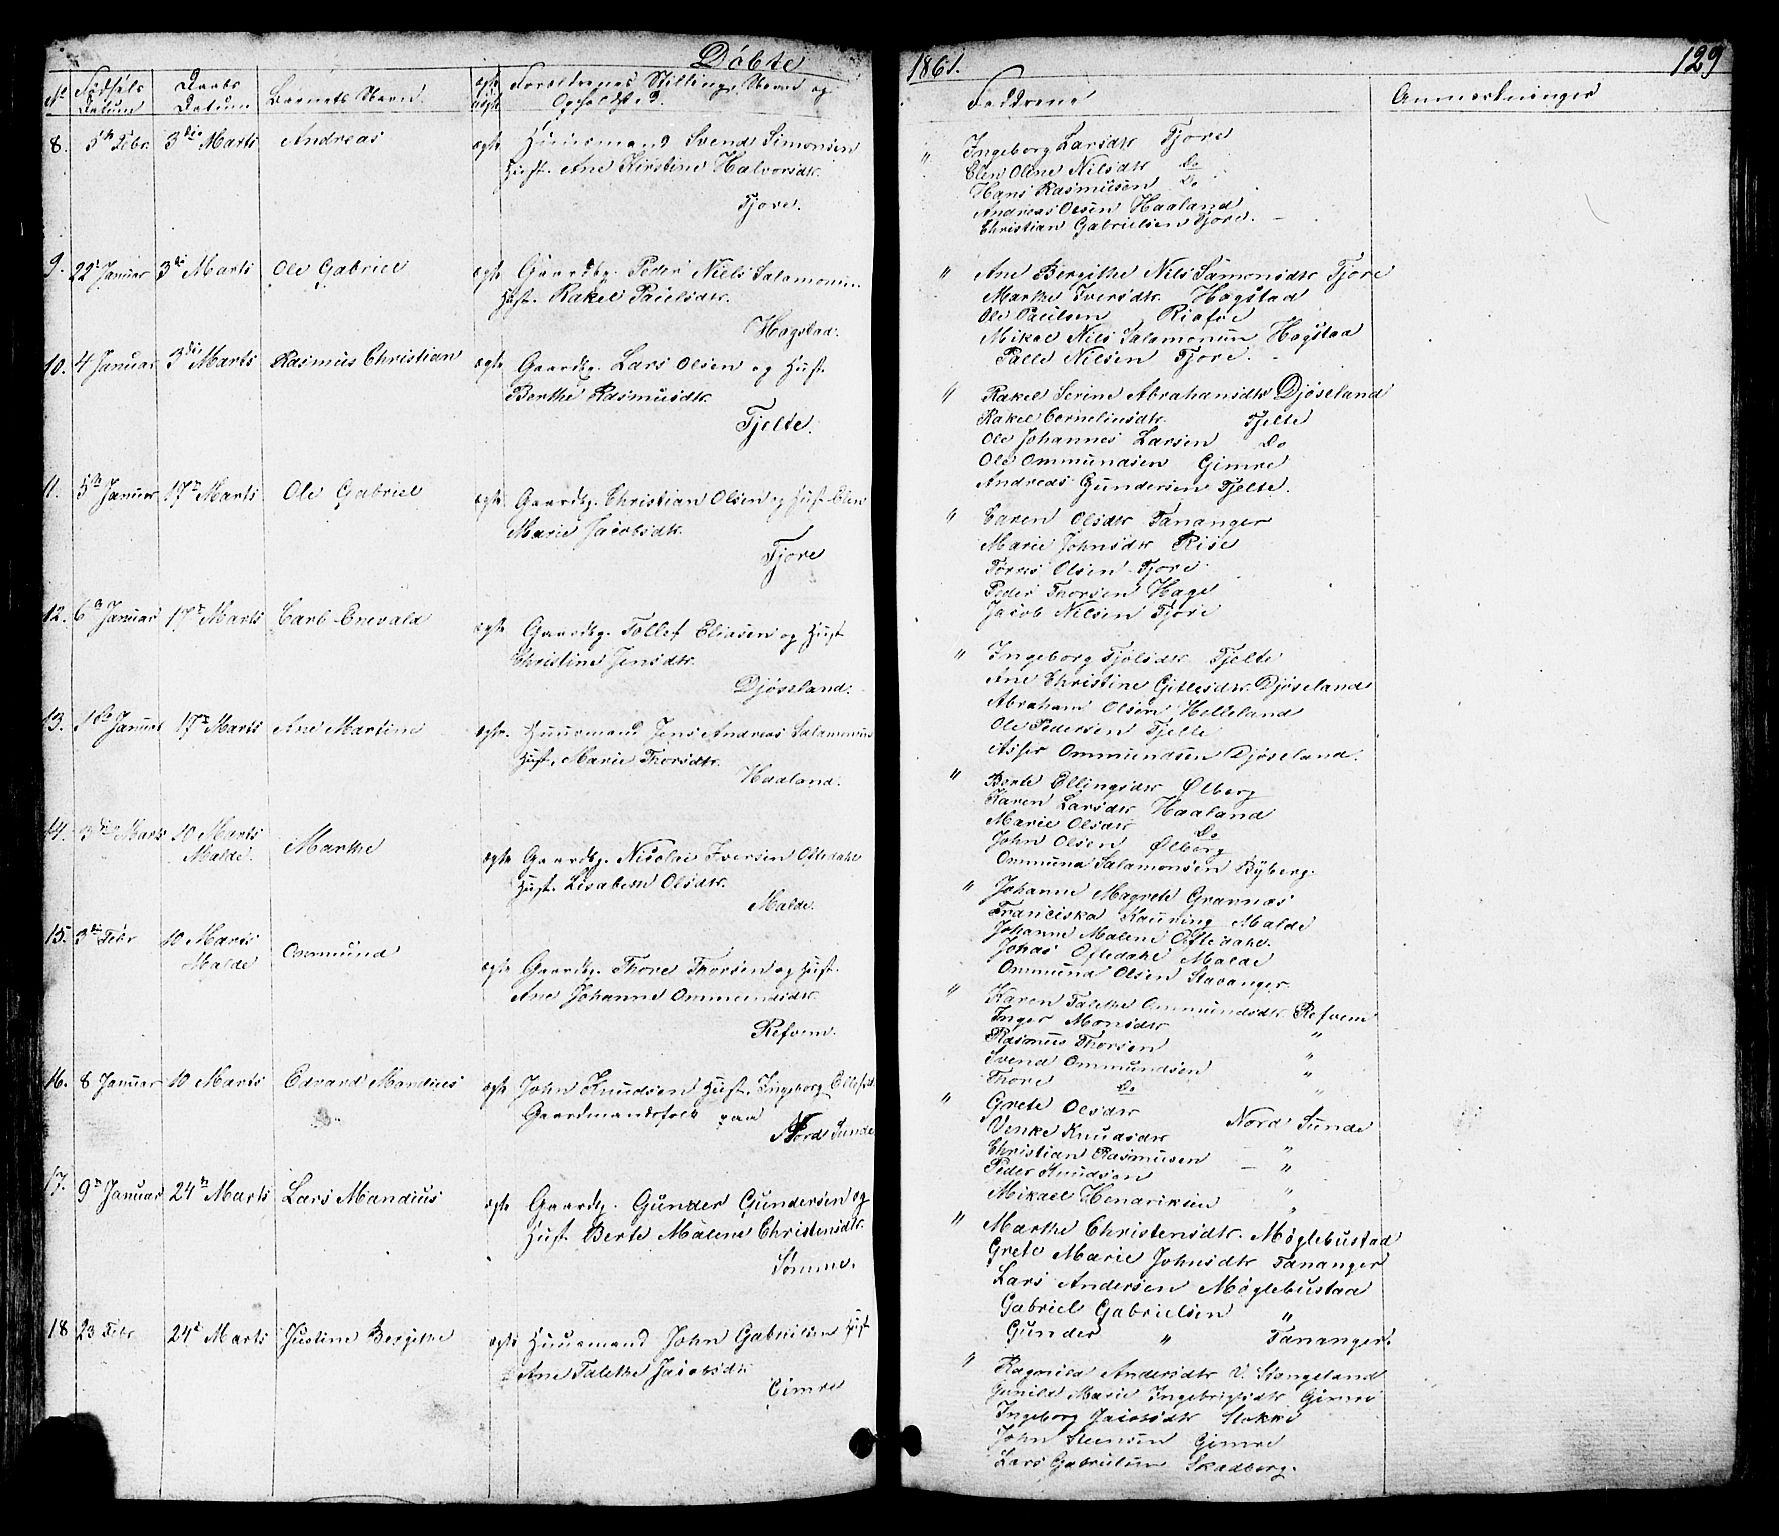 Döbte
1861.
129
No Födsels Datum Daabs Datum Barnets Navn. ægte uægte Forældrenes Stilling, Navn og Opholdsted.
Faddrene
Anmærkninger
8. 5te Febr. 3die Marts Andreas ægte Huusmand Svend Simonsen
Hust. Ane Kirstine Halvorsdtr.
Tjore.
" Ingeborg Larsdtr Tjore
Elen Oline Nilsdtr Do
Hans Rasmusen Do
Andreas Olsen Haaland
Christian Gabrielsen Tjore.
9. 22de Januar 3die Marts Ole Gabriel ægte Gaardbg. Peder Niels Salamonsen
Hust. Rakel Paulsdtr.
Hogstad.
" Ane Bergithe Nils Samonsdtr Tjore
Marthe Iversdtr. Hogstad
Ole Paulsen Risfoe
Mikal Nils Salamonsen Hogstad
Palle Nilsen Tjore.
10. 4 Januar 3die Marts Rasmus Christian ægte Gaardbg. Lars Olsen og Hust.
Berthe Rasmusdtr.
Tjelte.
" Rakel Serine Abrahamsdtr Djöseland
Rakel Corneliusdtr. Tjelte
Ole Johannes Larsen Do
Ole Ommundsen Gimre
Andreas Gundersen Tjelte.
11. 5te Januar 17de Marts Ole Gabriel ægte Gaardbg. Christian Olsen og Hust Elen
Marie Jacobsdtr.
Tjore
" Caren Olsdtr Tananger
Marie Johnsdtr Rise
Tores Olsen Tjore
Peder Thorsen Hage
Jacob Nilsen Tjore
12. 6te Januar 17de Marts Carl Enevald ægte Gaardbg. Tollef Eliasen og Hust
Christine Jensdtr.
Djöseland.
" Ingeborg Tjölsdtr. Tjelte
Ane Christine Gitlesdtr. Djöseland
Abraham Olsen Helleland
Ole Pedersen Tjelte
Asser Ommundsen Djöseland.
13. 1ste Januar 17de Marts Ane Martine ægte. Huusmand Jens Andreas Salamonsen
Hust. Marie Thorsdtr.
Haaland.
" Berte Ellingsdtr Ølberg
Karen Larsdtr Haaland
Marie Olsdtr Do
John Olsen Ølberg
Ommund Salamonsen Byberg.
14. 3die Marts 10 Marts Malde. Marthe ægte Gaardbg. Nicolai Iversen Oftedahl
Hust. Lisabeth Olsdtr.
Malde.
" Johanne Magrete Grannæs
Franciska Kauring Malde
Johanne Malene Oftedahl.
Johas Oftedahl Malde
Ommund Olsen Stavanger.
15. 3die Febr 10 Marts Malde Ommund ægte Gaardbg. Thore Thorsen og Hust.
Ane Johanne Ommundsdtr.
Refvem.
" Karen Talethe Ommundsdtr Refvem
Inger Monsdtr "
Rasmus Thorsen "
Svend Ommundsen "
Thore Do "
16. 8 Januar 10 Marts Edvard Mandius ægte John Knudsen Hust. Ingeborg Ellefsd
Gaardmandsfolk paa
Nord Sunde
" Grete Olsdtr Nord Sunde
Venke Knudsdtr
Christian Rasmusen — "
Peder Knudsen — "
Mikael Hendriksen "
17. 9de Januar 24de Marts Lars Mandius ægte Gaardbg. Gunder Gundersen og
Hust. Berte Malene Christensdtr.
Sömme.
" Marthe Christensdtr. Möglebustad
Grete Marie Johnsdtr Tananger
Lars Andersen Möglebustad
Gabriel Gabrielsen "
Gunder " Tananger.
18 23 Febr 24de Marts Justine Bergithe ægte Huusmand John Gabrielsen Hust
Ane Talethe Jacobsdtr
Gimre
" Ragnild Andersdtr V. Stangeland
Gunild Marie Ingebrigtsdtr Gimre
Ingeborg Jacobsdtr Stokke
John Steensen Gimre
Lars Gabrielsen Skadberg.